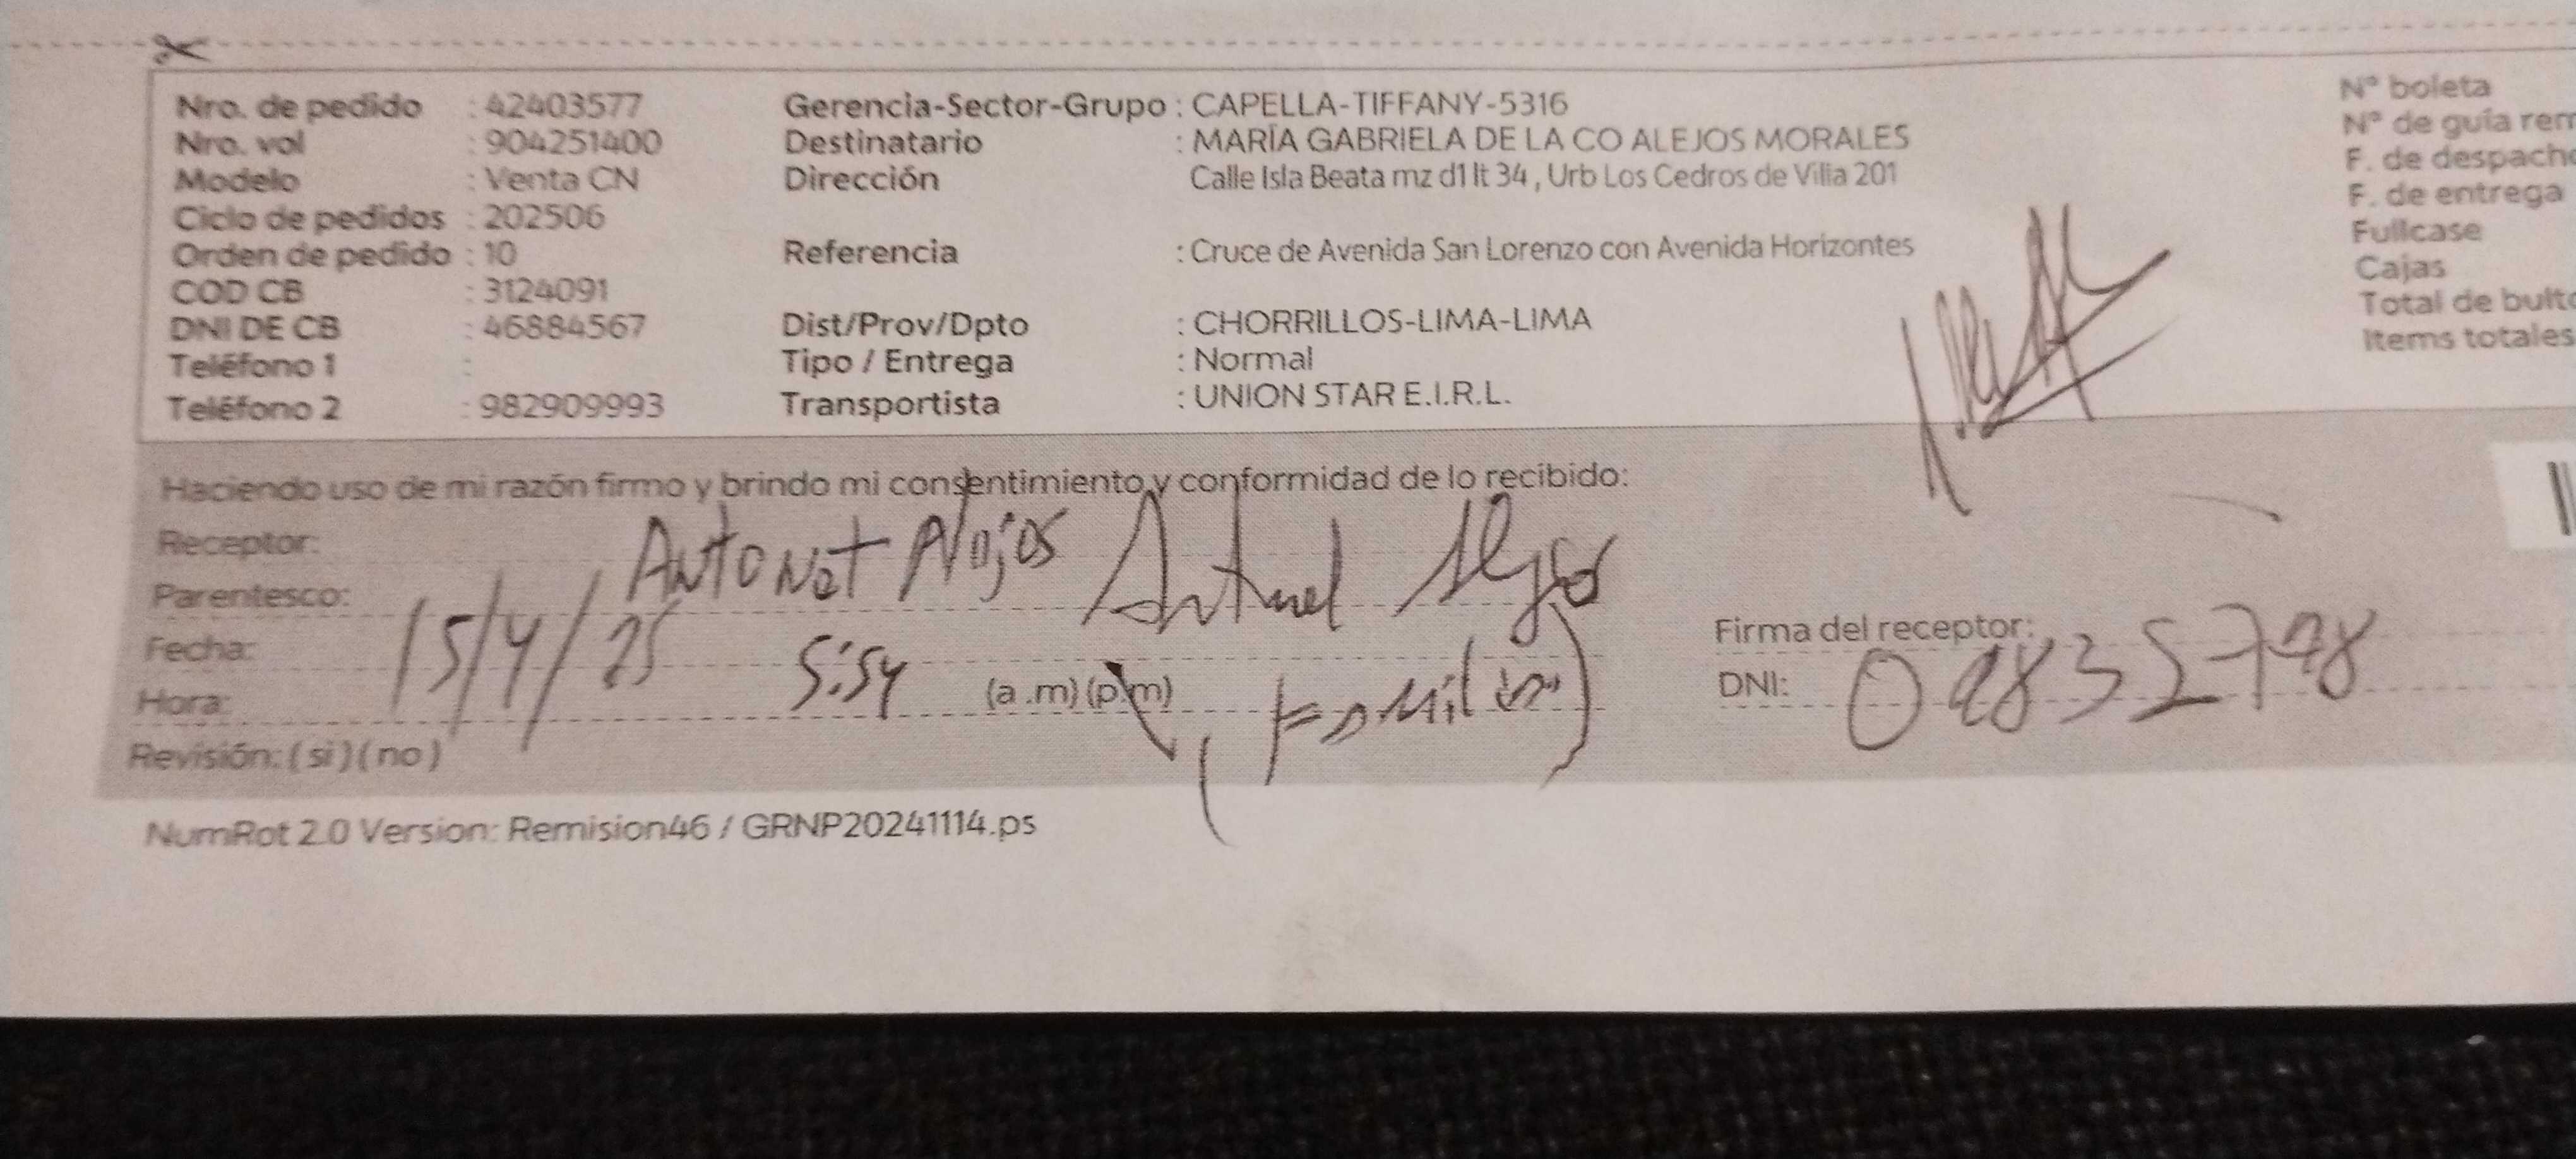 Nro. de pedido : 42403577 Gerencia-Sector-Grupo : CAPELLA-TIFFANY-5316 N° boleta
Nro. vol : 904251400 Destinatario : MARÍA GABRIELA DE LA CO ALEJOS MORALES N° de guía rem
Modelo : Venta CN Dirección Calle Isla Beata mz d1 lt 34 , Urb Los Cedros de Villa 201 F. de despacho
Ciclo de pedidos : 202506 F. de entrega
Orden de pedido : 10 Referencia : Cruce de Avenida San Lorenzo con Avenida Horizontes Fullcase
COD CB : 3124091 Cajas
DNI DE CB : 46884567 Dist/Prov/Dpto : CHORRILLOS-LIMA-LIMA Total de bulto
Teléfono 1 : Tipo / Entrega : Normal Items totales
Teléfono 2 : 982909993 Transportista : UNION STAR E.I.R.L.
Haciendo uso de mi razón firmo y brindo mi consentimiento y conformidad de lo recibido:
Receptor: Alejos
Parentesco:
Fecha: 15/4/25 Firma del receptor:
Hora: 5:54 (a .m) (p.m) DNI:
Revisión: ( si ) ( no )
NumRot 2.0 Version: Remision46 / GRNP20241114.ps